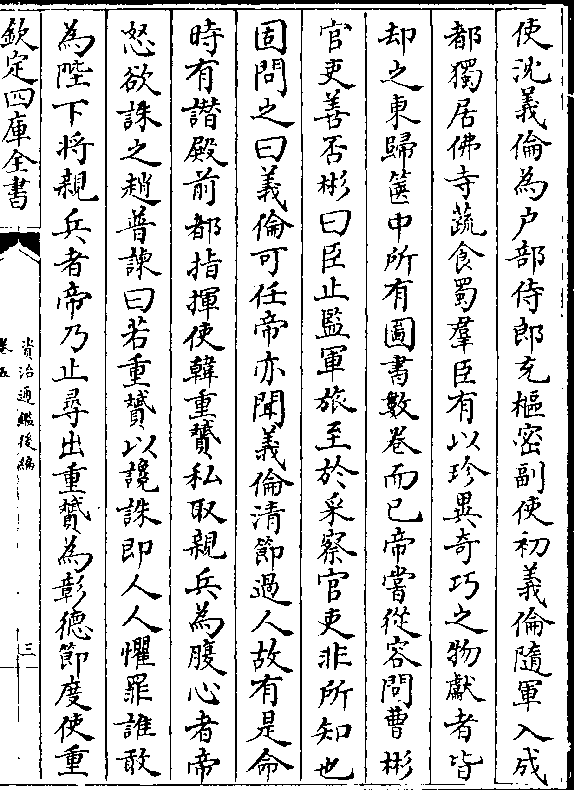 使沈義倫為户部侍郎充樞密副使初義倫隨軍入成
都獨居佛寺蔬食蜀羣臣有以珍異奇巧之物獻者皆
却之東歸篋中所有圖書數卷而已帝嘗從容問曹彬
官吏善否彬曰臣止監軍旅至於采察官吏非所知也
固問之曰義倫可任帝亦聞義倫清節過人故有是命
時有譖殿前都指揮使韓重贇私取親兵為腹心者帝
怒欲誅之趙普諫曰若重贇以讒誅即人人懼罪誰敢
為陛下将親兵者帝乃止尋出重贇為彰德節度使重
欽定四庫全書
資治通鑑後編
卷五
三